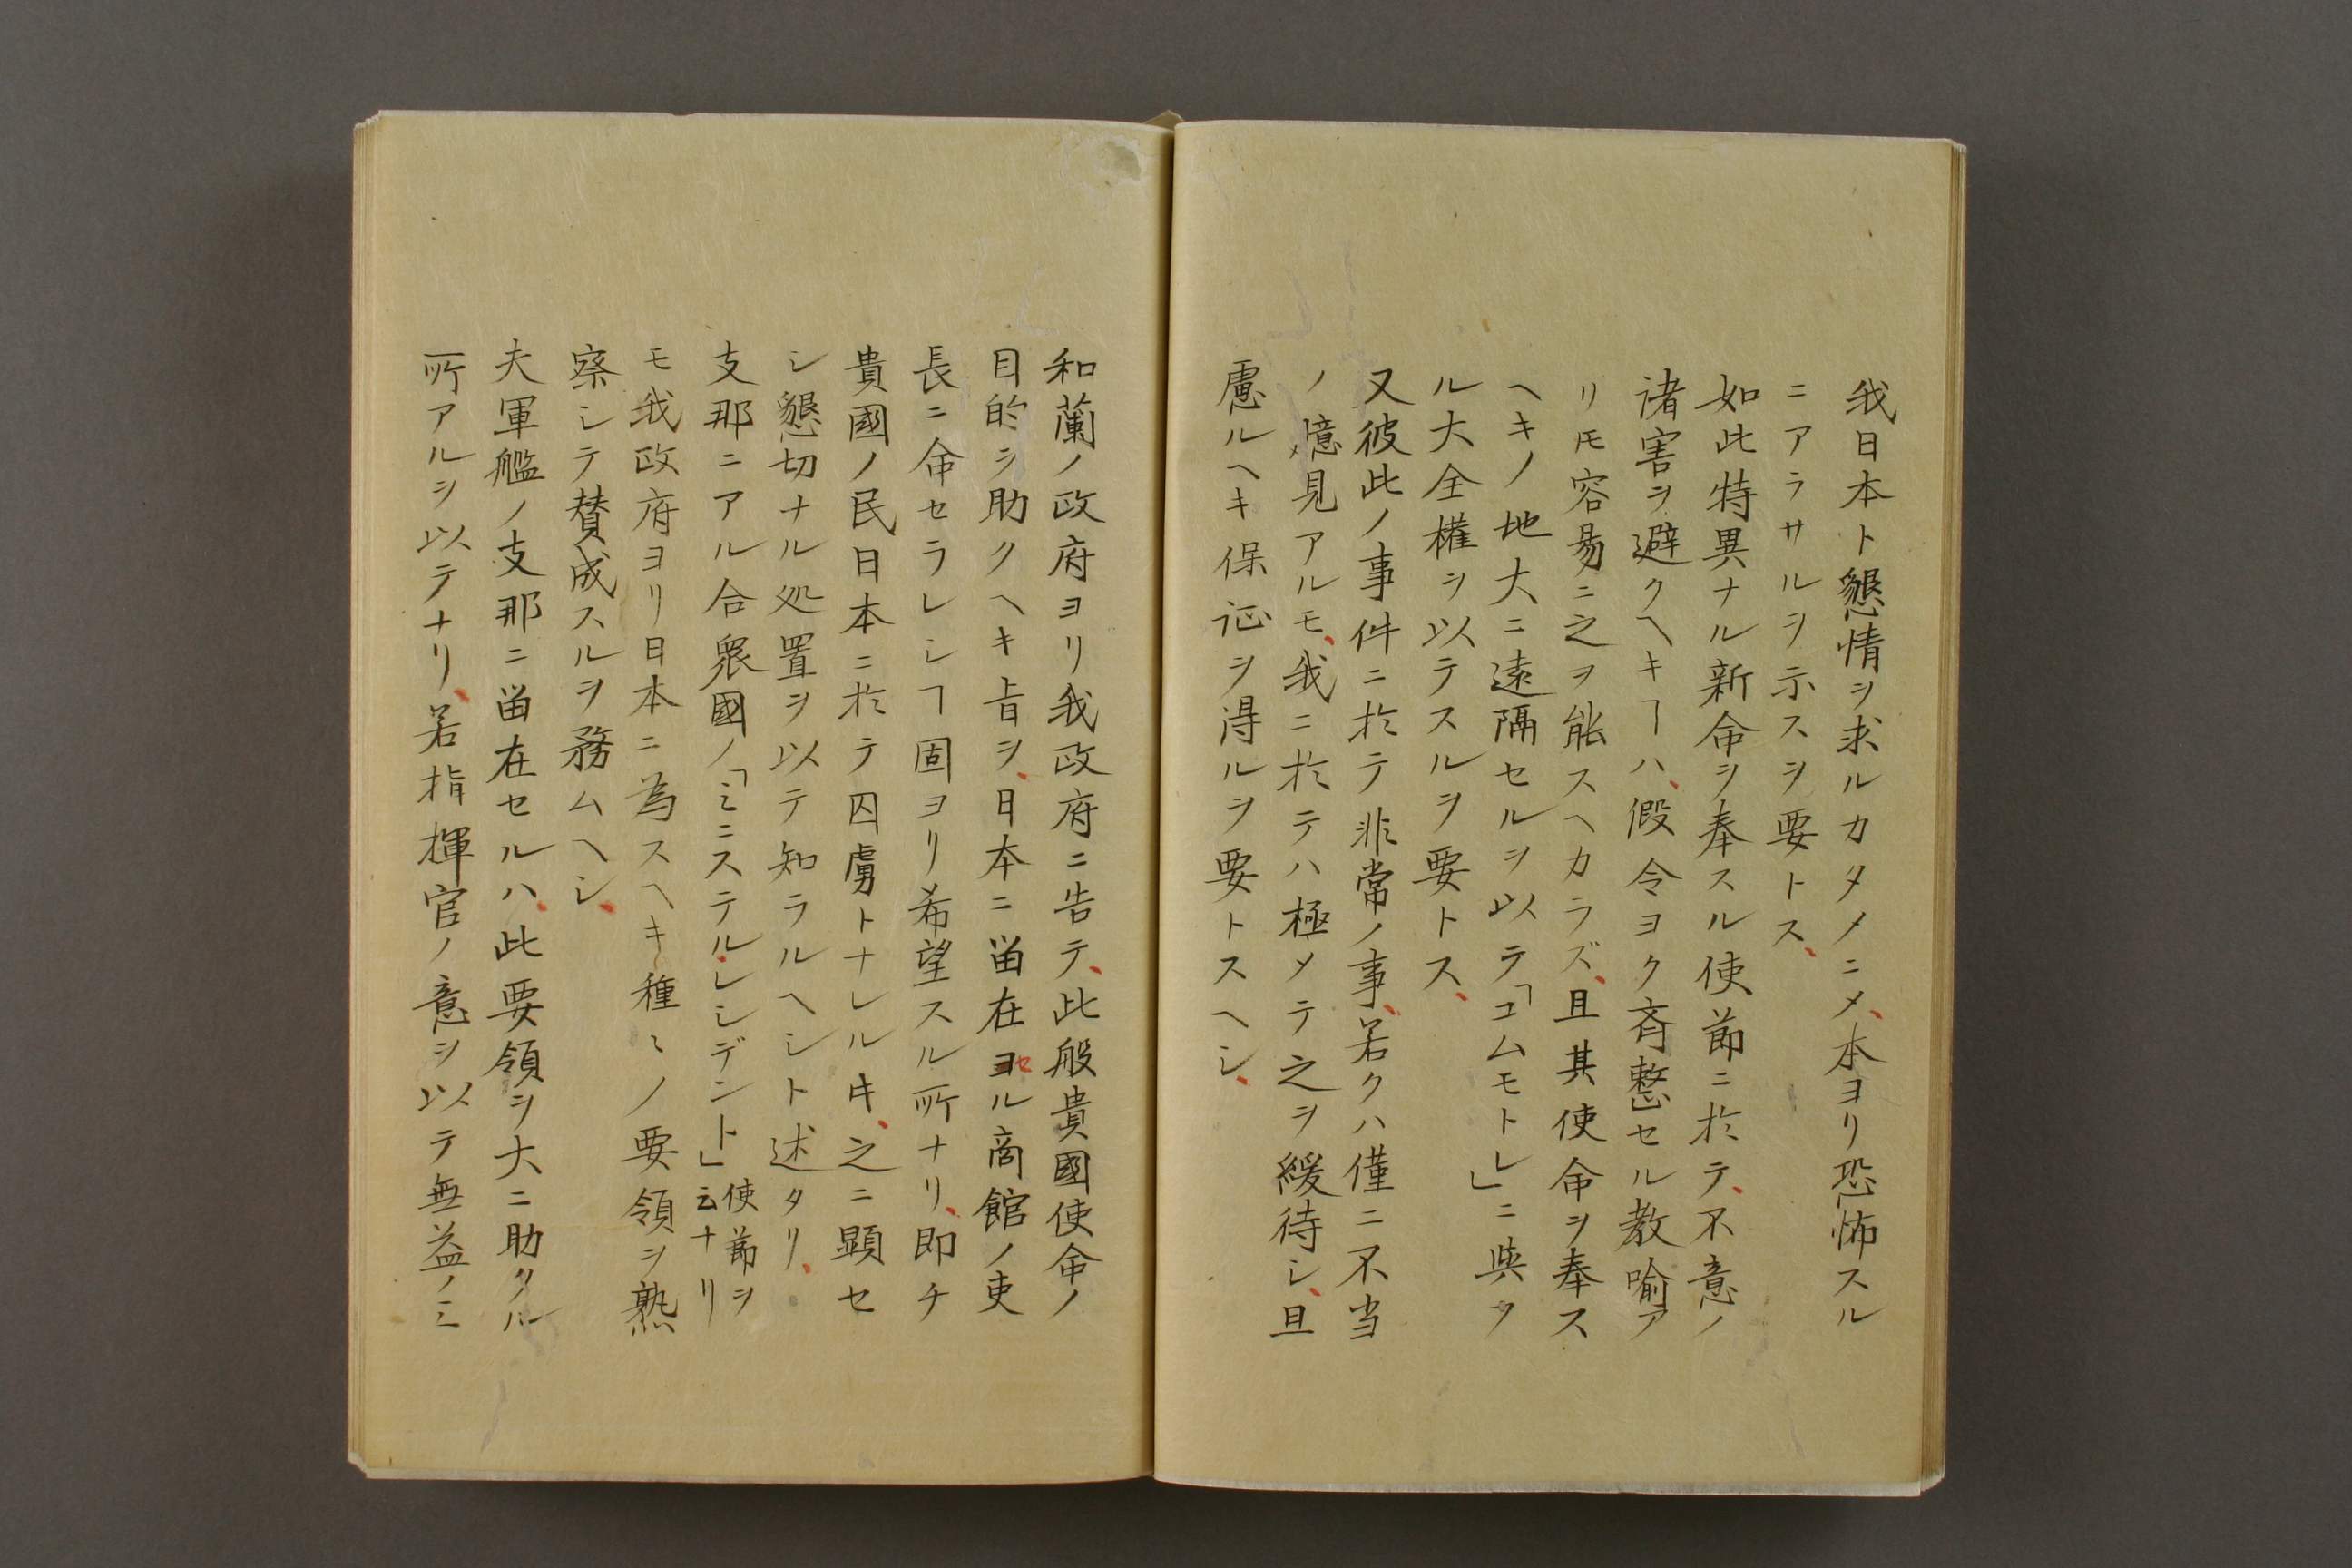 我日本ト懇情ヲ求ルカタメニメ、本ヨリ恐怖スル
ニアラサルヲ示スヲ要トス、
如此特異ナル新命ヲ奉スル使節ニ於テ、不意ノ
諸害ヲ避クヘキヿハ、假令ヨク斉整セル教喩ア
リ𪜈容易ニ之ヲ能スヘカラズ、且其使命ヲ奉ス
ヘキノ地大ニ遠隔セルヲ以テ「コムモトレ」ニ與フ
ル大全權ヲ以テスルヲ要トス、
又彼此ノ事件ニ於テ非常ノ事、若クハ僅ニ不当
ノ憶見アルモ、我ニ於テハ極メテ之ヲ緩待シ、且
慮ルヘキ保证ヲ得ルヲ要トスヘシ、
和蘭ノ政府ヨリ我政府ニ告テ、此般貴國使命ノ
目的ヲ助クヘキ旨ヲ、日本ニ畄在ヨセル商館ノ吏
長ニ命セラレシヿ固ヨリ希望スル所ナリ、即チ
貴國ノ民日本ニ於テ囚虜トナレル𪜈、之ニ顕セ
シ懇切ナル処置ヲ以テ知ラルヘシト述タリ、
支那ニアル合衆國ノ「ミニステル、レシデント」使節ヲ云ナリ
モ我政府ヨリ日本ニ為スヘキ種ミノ要領ヲ熟
察シテ賛成スルヲ務ムヘシ、
夫軍艦ノ支那ニ畄在セルハ、此要領ヲ大ニ助クル
所アルヲ以テナリ、若指揮官ノ意ヲ以テ無益ノミ